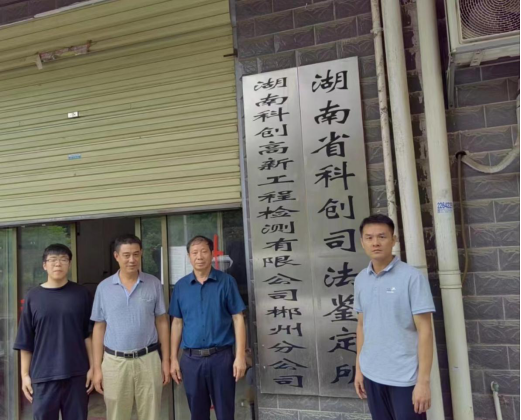 湖南省科创司法鉴定所
湖南科创高新工程检测有限公司郴州分公司